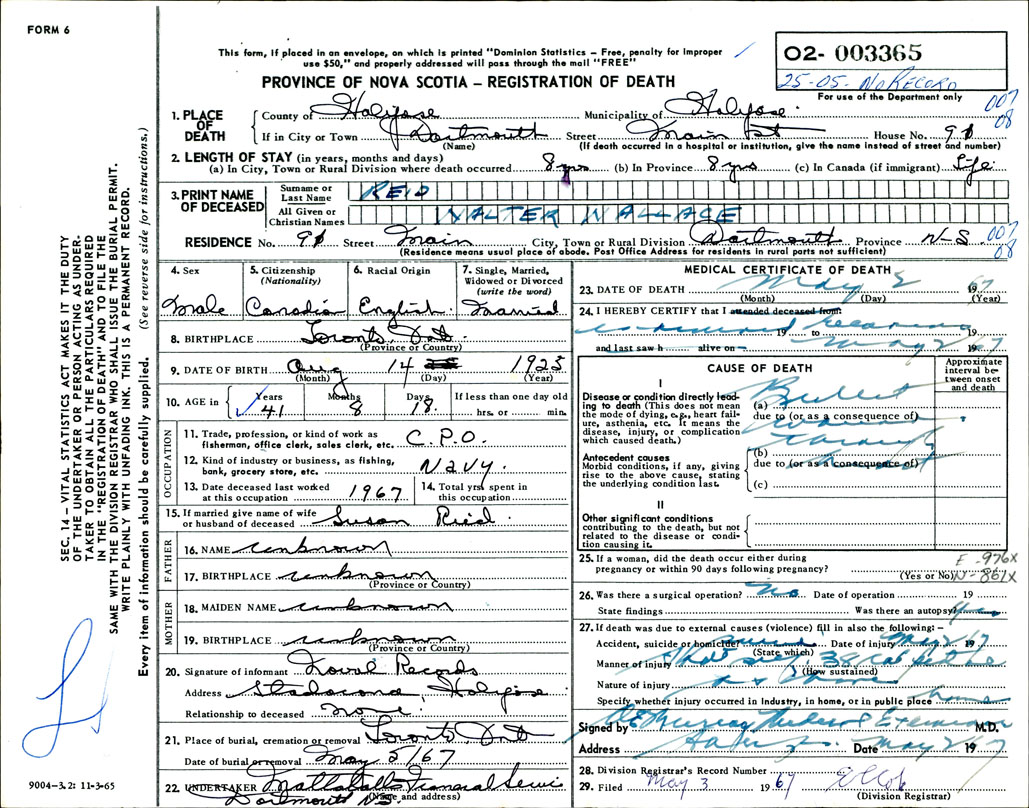 FORM 6
This form, if placed in an envelope, on which is printed "Dominion Statistics – Free, penalty for improper
use $50," and properly addressed will pass through the mail "FREE"
PROVINCE OF NOVA SCOTIA – REGISTRATION OF DEATH
02- 003365
25-05- No Record
For use of the Department only
007
08
1. PLACE OF DEATH
County of Halifax Municipality of Halifax
If in City or Town Dartmouth Street Main St House No. 90
(Name) (If death occurred in a hospital or institution, give the name instead of street and number)
2. LENGTH OF STAY (in years, months and days)
(a) In City, Town or Rural Division where death occurred 8 yrs (b) In Province 8 yrs (c) In Canada (if immigrant) Life
3. PRINT NAME OF DECEASED
Surname or Last Name REID
All Given or Christian Names WALTER WALLACE
RESIDENCE No. 90 Street Main City, Town or Rural Division Dartmouth Province N-S. 007
08
(Residence means usual place of abode. Post Office Address for residents in rural parts not sufficient)
4. Sex
5. Citizenship (Nationality)
6. Racial Origin
7. Single, Married, Widowed or Divorced (write the word)
Male Canadian English Married
8. BIRTHPLACE Toronto, Ont
(Province or Country)
9. DATE OF BIRTH Aug 14 1925
(Month) (Day) (Year)
10. AGE in Years Months Days If less than one day old
41 8 18. hrs. or min.
OCCUPATION
11. Trade, profession, or kind of work as
fisherman, office clerk, sales clerk, etc. C.P.O.
12. Kind of industry or business, as fishing,
bank, grocery store, etc. Navy.
13. Date deceased last worked
at this occupation 1967
14. Total yrs. spent in
this occupation
15. If married give name of wife
or husband of deceased Susan Reid
FATHER
16. NAME unknown
17. BIRTHPLACE unknown
(Province or Country)
MOTHER
18. MAIDEN NAME unknown
19. BIRTHPLACE unknown
(Province or Country)
20. Signature of informant Naval Records
Address Stadacona Halifax
Relationship to deceased none
21. Place of burial, cremation or removal Toronto, Ont
Date of burial or removal May 5/67
22. UNDERTAKER Mattatall Funeral Servi
Dartmouth NS
(Name and address)
MEDICAL CERTIFICATE OF DEATH
23. DATE OF DEATH May 2 1967
(Month) (Day) (Year)
24. I HEREBY CERTIFY that I attended deceased from:
19 to 19
and last saw h alive on May 2 1967
CAUSE OF DEATH
Approximate interval between onset and death
I
Disease or condition directly leading to death (This does not mean the mode of dying, e.g., heart failure, asthenia, etc. It means the disease, injury, or complication which caused death.)
(a) Bullet
due to (or as a consequence of)
wound
Antecedent causes
Morbid conditions, if any, giving rise to the above cause, stating the underlying condition last.
(b)
due to (or as a consequence of)
(c)
II
Other significant conditions contributing to the death, but not related to the disease or condition causing it.
25. If a woman, did the death occur either during
pregnancy or within 90 days following pregnancy?
(Yes or No)
E-976X
N-861X
26. Was there a surgical operation? No Date of operation 19
State findings Was there an autopsy? Yes
27. If death was due to external causes (violence) fill in also the following:–
Accident, suicide or homicide? Date of injury May 2 1967
(State which)
Manner of injury shot self 38 cal
(How sustained)
Nature of injury as above
Specify whether injury occurred in Industry, in home, or in public place home
Signed by M.D.
Address Halifax Date May 2 1967
28. Division Registrar's Record Number
29. Filed May 3 1967
(Division Registrar)
9004-3.2: 11-3-65
SEC. 14 – VITAL STATISTICS ACT MAKES IT THE DUTY
OF THE UNDERTAKER OR PERSON ACTING AS UNDER-
TAKER TO OBTAIN ALL THE PARTICULARS REQUIRED
IN THE "REGISTRATION OF DEATH" AND TO FILE THE
SAME WITH THE DIVISION REGISTRAR WHO SHALL ISSUE THE BURIAL PERMIT.
WRITE PLAINLY WITH UNFADING INK. THIS IS A PERMANENT RECORD.
Every item of information should be carefully supplied. (See reverse side for instructions.)